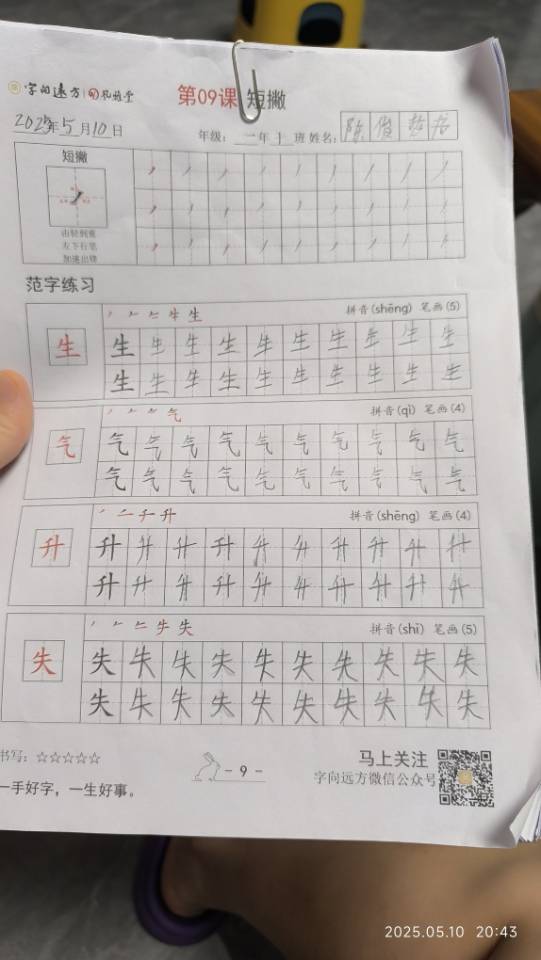 字向远方
第09课 短撇
2025年5月10日
年级：二年十班 姓名：陈俊
短撇
由轻到重
左下行笔
加速出锋
范字练习
生 拼音(shēng) 笔画(5)
生 生 生 生 生 生 生 生 生 生 生
生 生 生 生 生 生 生 生 生 生
气 拼音(qì) 笔画(4)
气 气 气 气 气 气 气 气 气 气 气
气 气 气 气 气 气 气 气 气 气
升 拼音(shēng) 笔画(4)
升 升 升 升 升 升 升 升 升 升 升
升 升 升 升 升 升 升 升 升 升
失 拼音(shī) 笔画(5)
失 失 失 失 失 失 失 失 失 失 失
失 失 失 失 失 失 失 失 失 失
书写：☆☆☆☆☆
- 9 -
马上关注
字向远方微信公众号
一手好字，一生好事。
2025.05.10 20:43